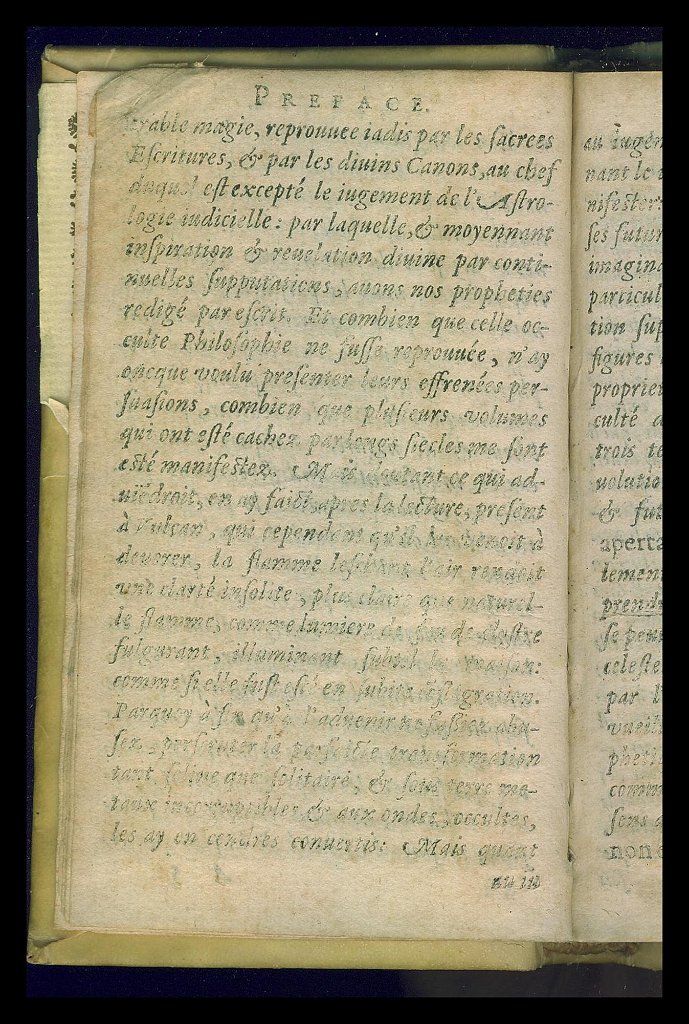 PREFACE.
crable magie, reprouuee iadis par les sacrees
Escritures, & par les diuins Canons, au chef
duquel est excepté le iugement de l'Astro-
logie iudicielle: par laquelle, & moyennant
inspiration & reuelation diuine par conti-
nuelles supputations, auons nos propheties
redigé par escrit. Et combien que celle oc-
culte Philosophie ne fusse reprouuée, n'ay
oncque voulu presenter leurs effrenées per-
suasions, combien que plusieurs volumes
qui ont esté cachez par longs siecles me sont
esté manifestez. Mais doutant ce qui ad-
uiẽdroit, en ay faict, apres la lecture, present
à Vulcan, qui cependant qu'il les venoit à
deuorer, la flamme leschant l'air rendoit
vne clarté insolite, plus claire que naturel-
le flamme, comme lumiere de feu de clystre
fulgurant, illuminant subit la maison:
comme si elle fust esté en subite cõflagration.
Parquoy à fin qu'à l'aduenir ne abu-
sez, perscruter la parfaicte transformation
tant seline que solitaire, & sous terre me-
taux incorruptibles & aux ondes occultes,
les ay en cendres conuertis: Mais quant
au iugem
nant le
nifester:
ses futur
imagina
particul
tion sup
figures
propriet
culté
trois te
uolutio
& fut
aperta
lement
prendr
se peuu
celeste
par l
vueill
phetiz
comm
sens a
nonc